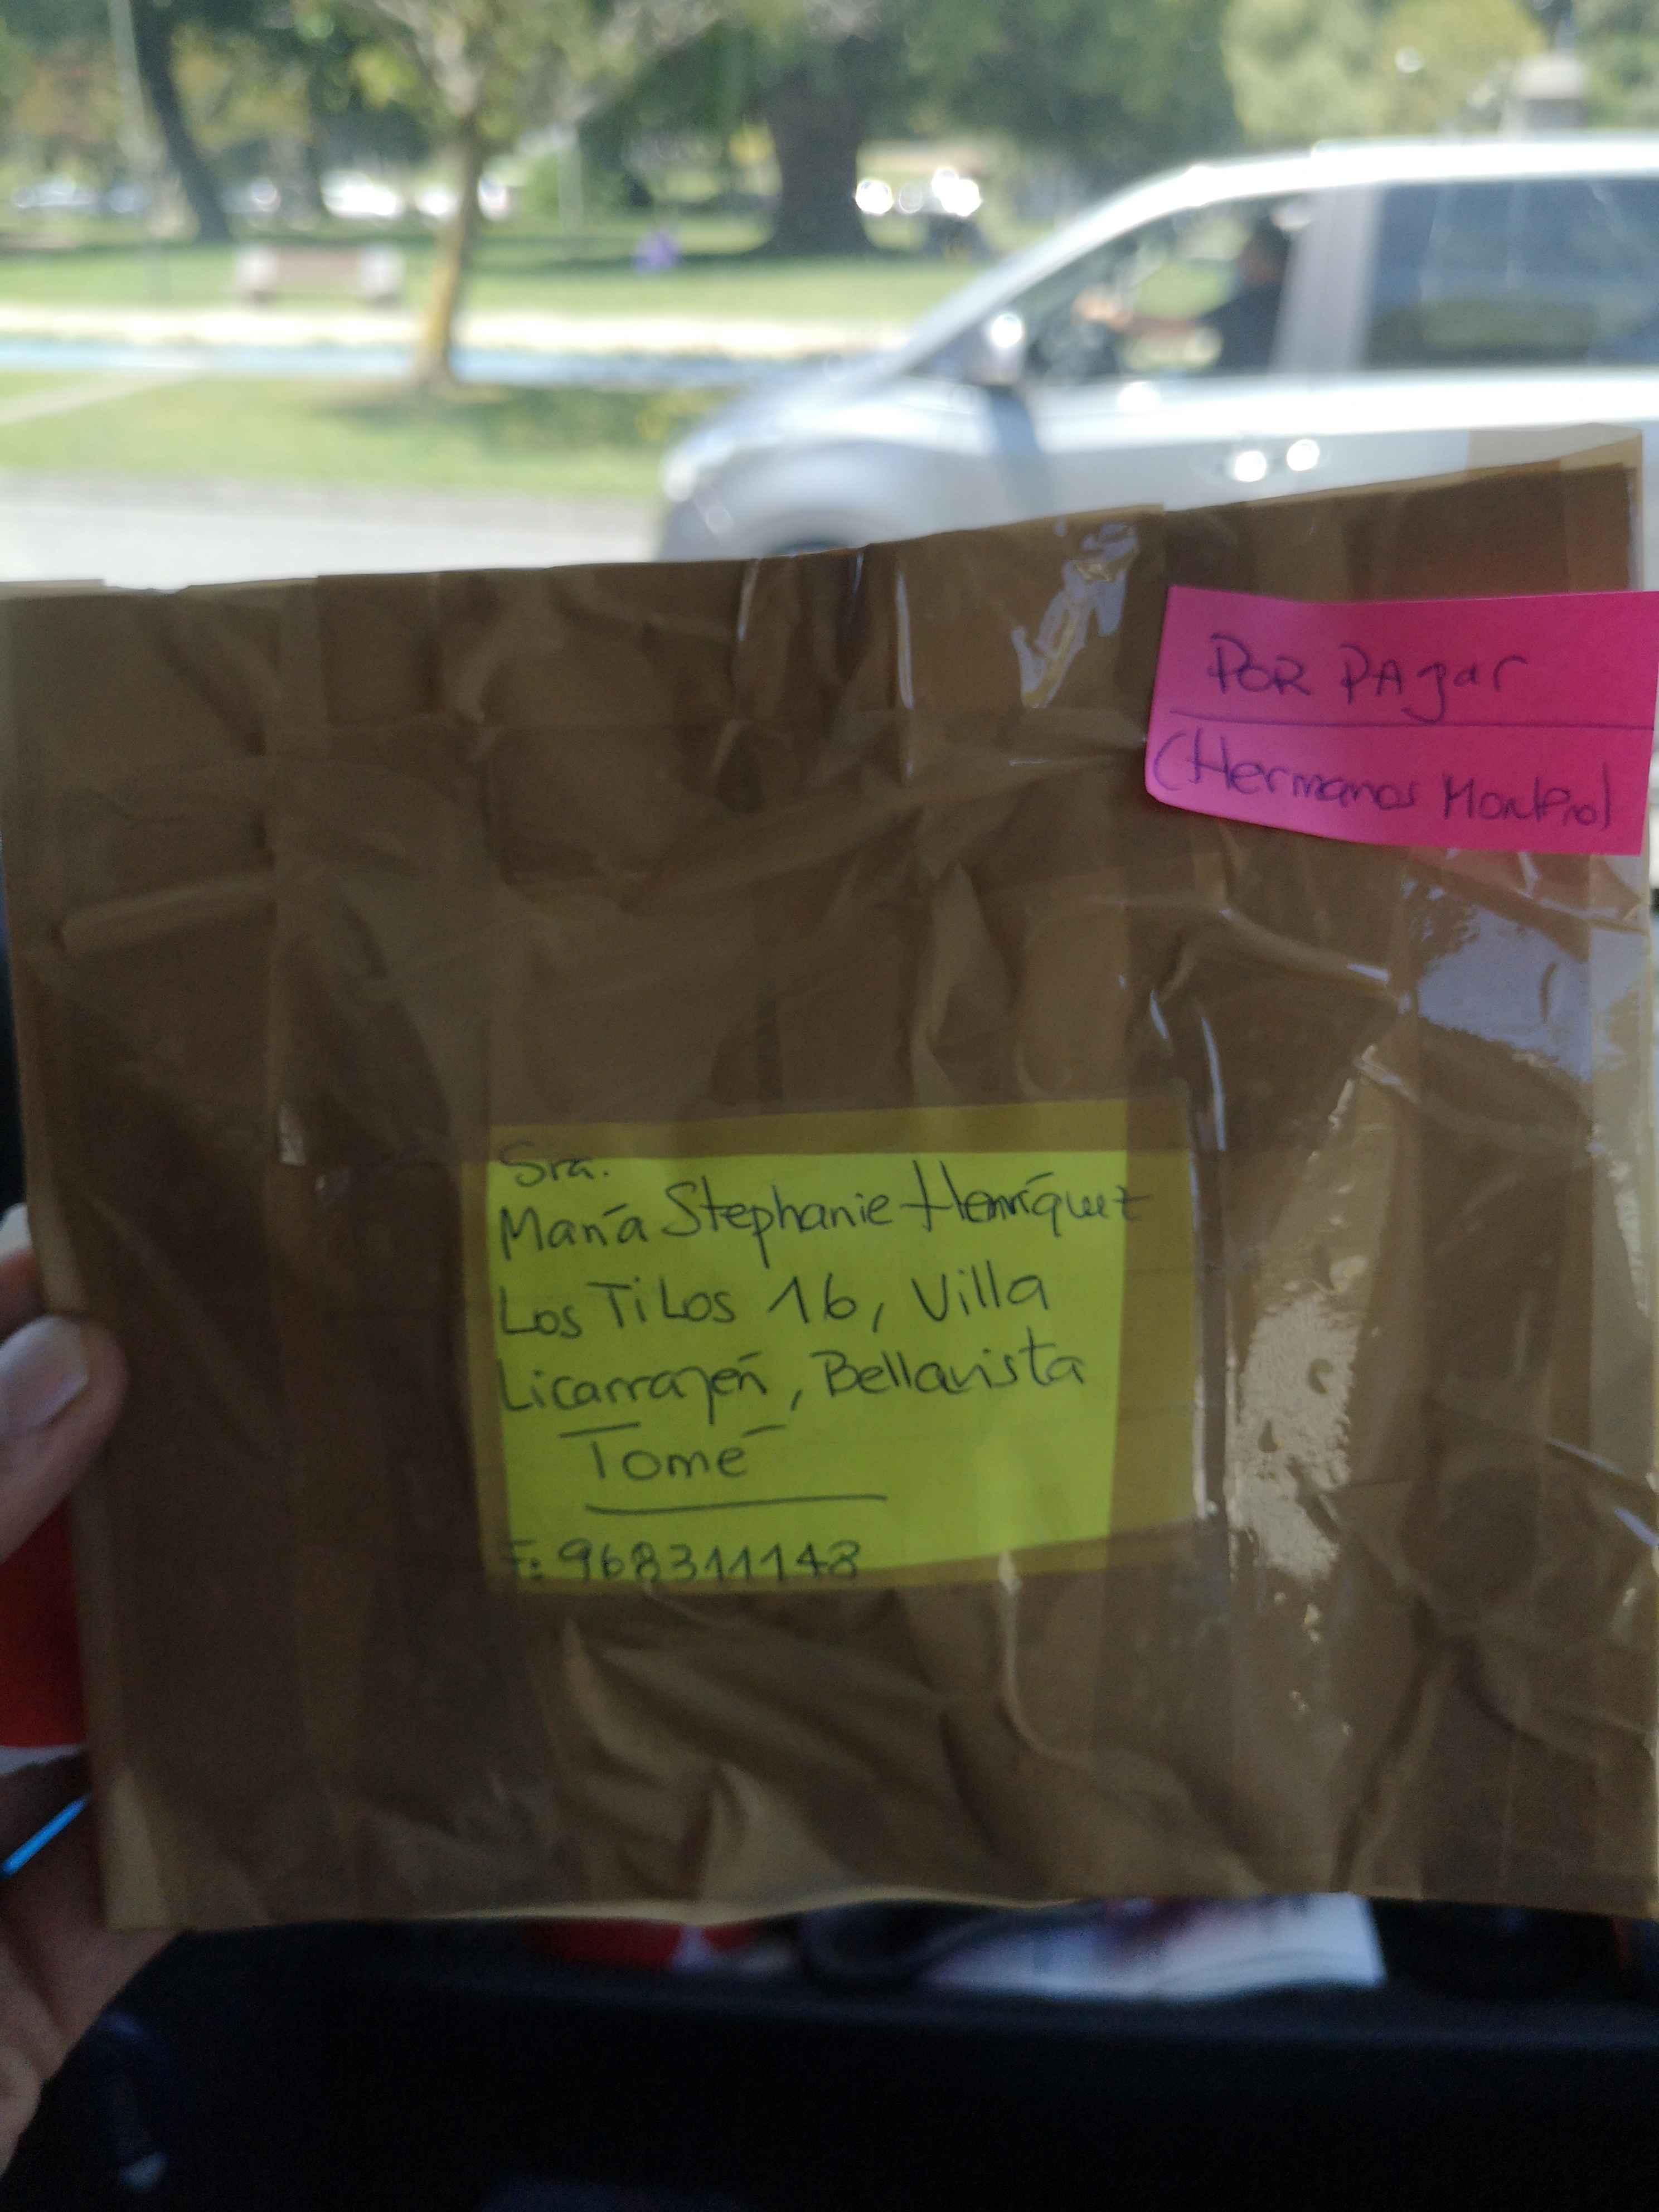 POR PAgar
(Hermanos Montero)
Sra.
María Stephanie Henríquez
Los Tilos 16, Villa
Bellavista
Tomé
F: 968311148